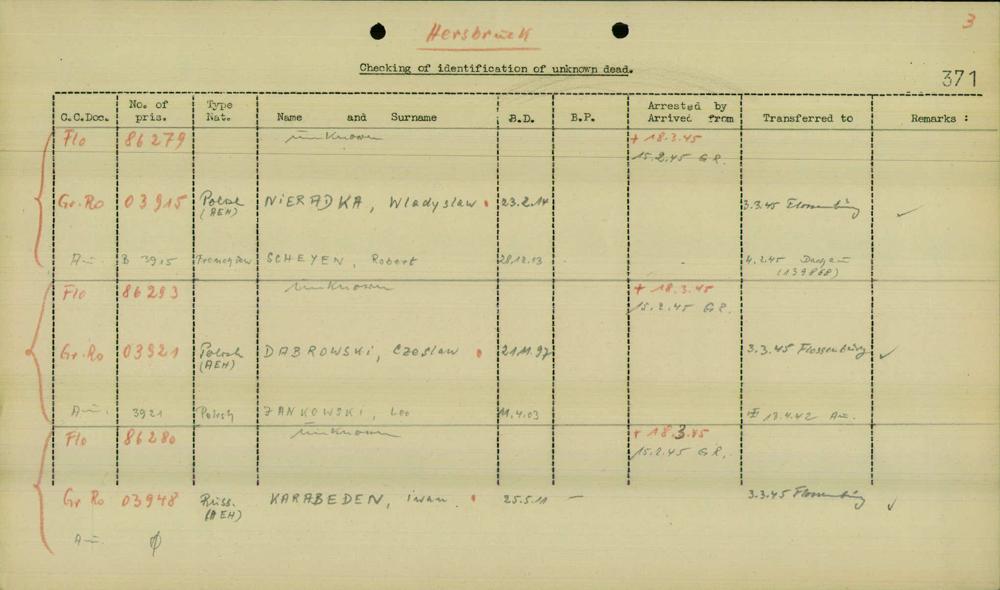 Hersbruck
3
Checking of identification of unknown dead.
371
C.C.Doc. No. of pris. Type Nat. Name and Surname B.D. B.P. Arrested by Arrived from Transferred to Remarks :
Flo 86279 unknown + 18.3.45
15.2.45 GR.
Gr.Ro 03915 Polish (AEH) NIERADKA, Wladyslaw 23.2.14 3.3.45 Flossenbürg ✓
Au. B 3915 SCHEYEN, Robert 28.12.03 4.2.45 Dachau
(139868)
Flo 86293 unknown + 18.3.45
15.2.45 GR.
Gr.Ro 03921 Polish (AEH) DABROWSKI, Czeslaw 21.11.97 3.3.45 Flossenbürg ✓
Au. 3921 Polish JANKOWSKI, Leo 11.4.03 13.4.42 Au.
Flo 86280 unknown + 18.3.45
15.2.45 GR.
Gr Ro 03948 Russ. (AEH) KARABEDEN, iwan 25.5.11 – 3.3.45 Flossenbürg ✓
Au. ϕ